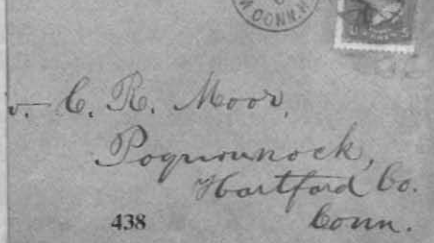 M CONN. R
v. C. R. Moor,
Poquonnock,
Hartford Co.
438
Conn.